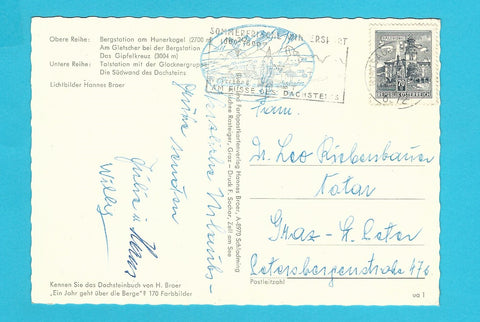 Obere Reihe: Bergstation am Hunerkogel (2700 m)
Am Gletscher bei der Bergstation
Das Gipfelkreuz (3004 m)
Untere Reihe: Talstation mit der Glocknergruppe
Die Südwand des Dachsteins
Lichtbilder Hannes Broer
SOMMERFRISCHE WINTERSPORT
AM FUSSE DES DACHSTEINS
REPUBLIK ÖSTERREICH
Herzliche Urlaubs-
grüße senden
Julia u. Klaus
Willy
Farbpostkartenverlag Hannes Broer, A-8970 Schladming
Rasteiger, Graz - Druck F. Sochor, Zell am See
Fam.
Dr. Leo Riebenbauer
Notar
Graz - St. Peter
Petersbergenstraße 476
Postleitzahl
Kennen Sie das Dachsteinbuch von H. Broer
"Ein Jahr geht über die Berge"? 170 Farbbilder
ua 1